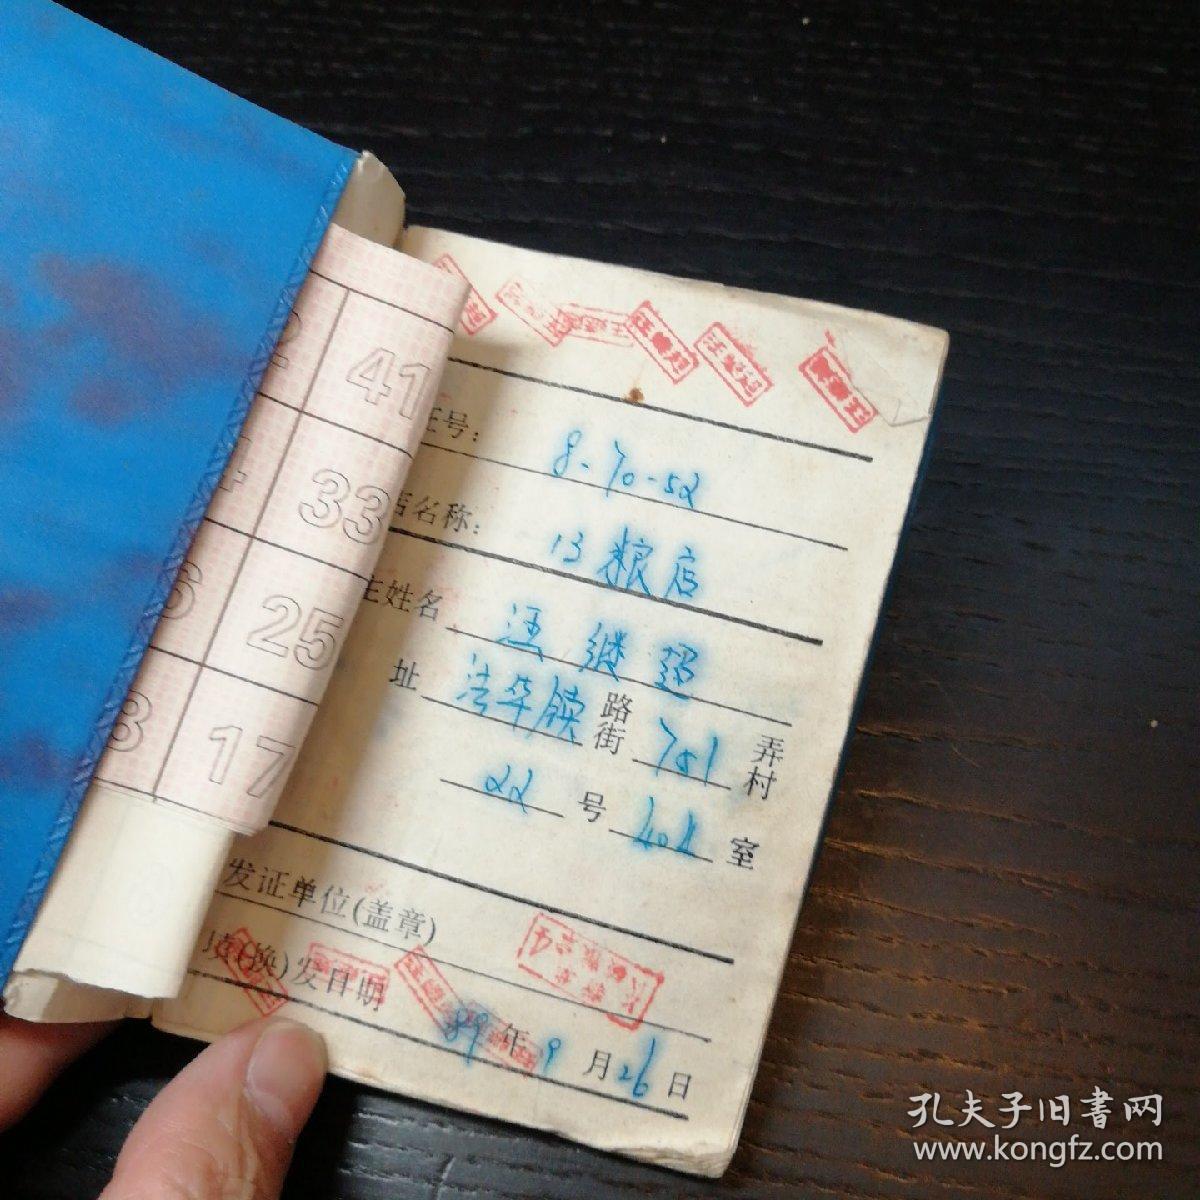 41
33
25
17
证号：8-70-52
店名称：13粮店
主姓名 汪继超
址 法华镇 路街 751 弄村
22 号 402 室
发证单位(盖章)
填(换)发日期
89年9月26日
孔夫子旧書网
www.kongfz.com